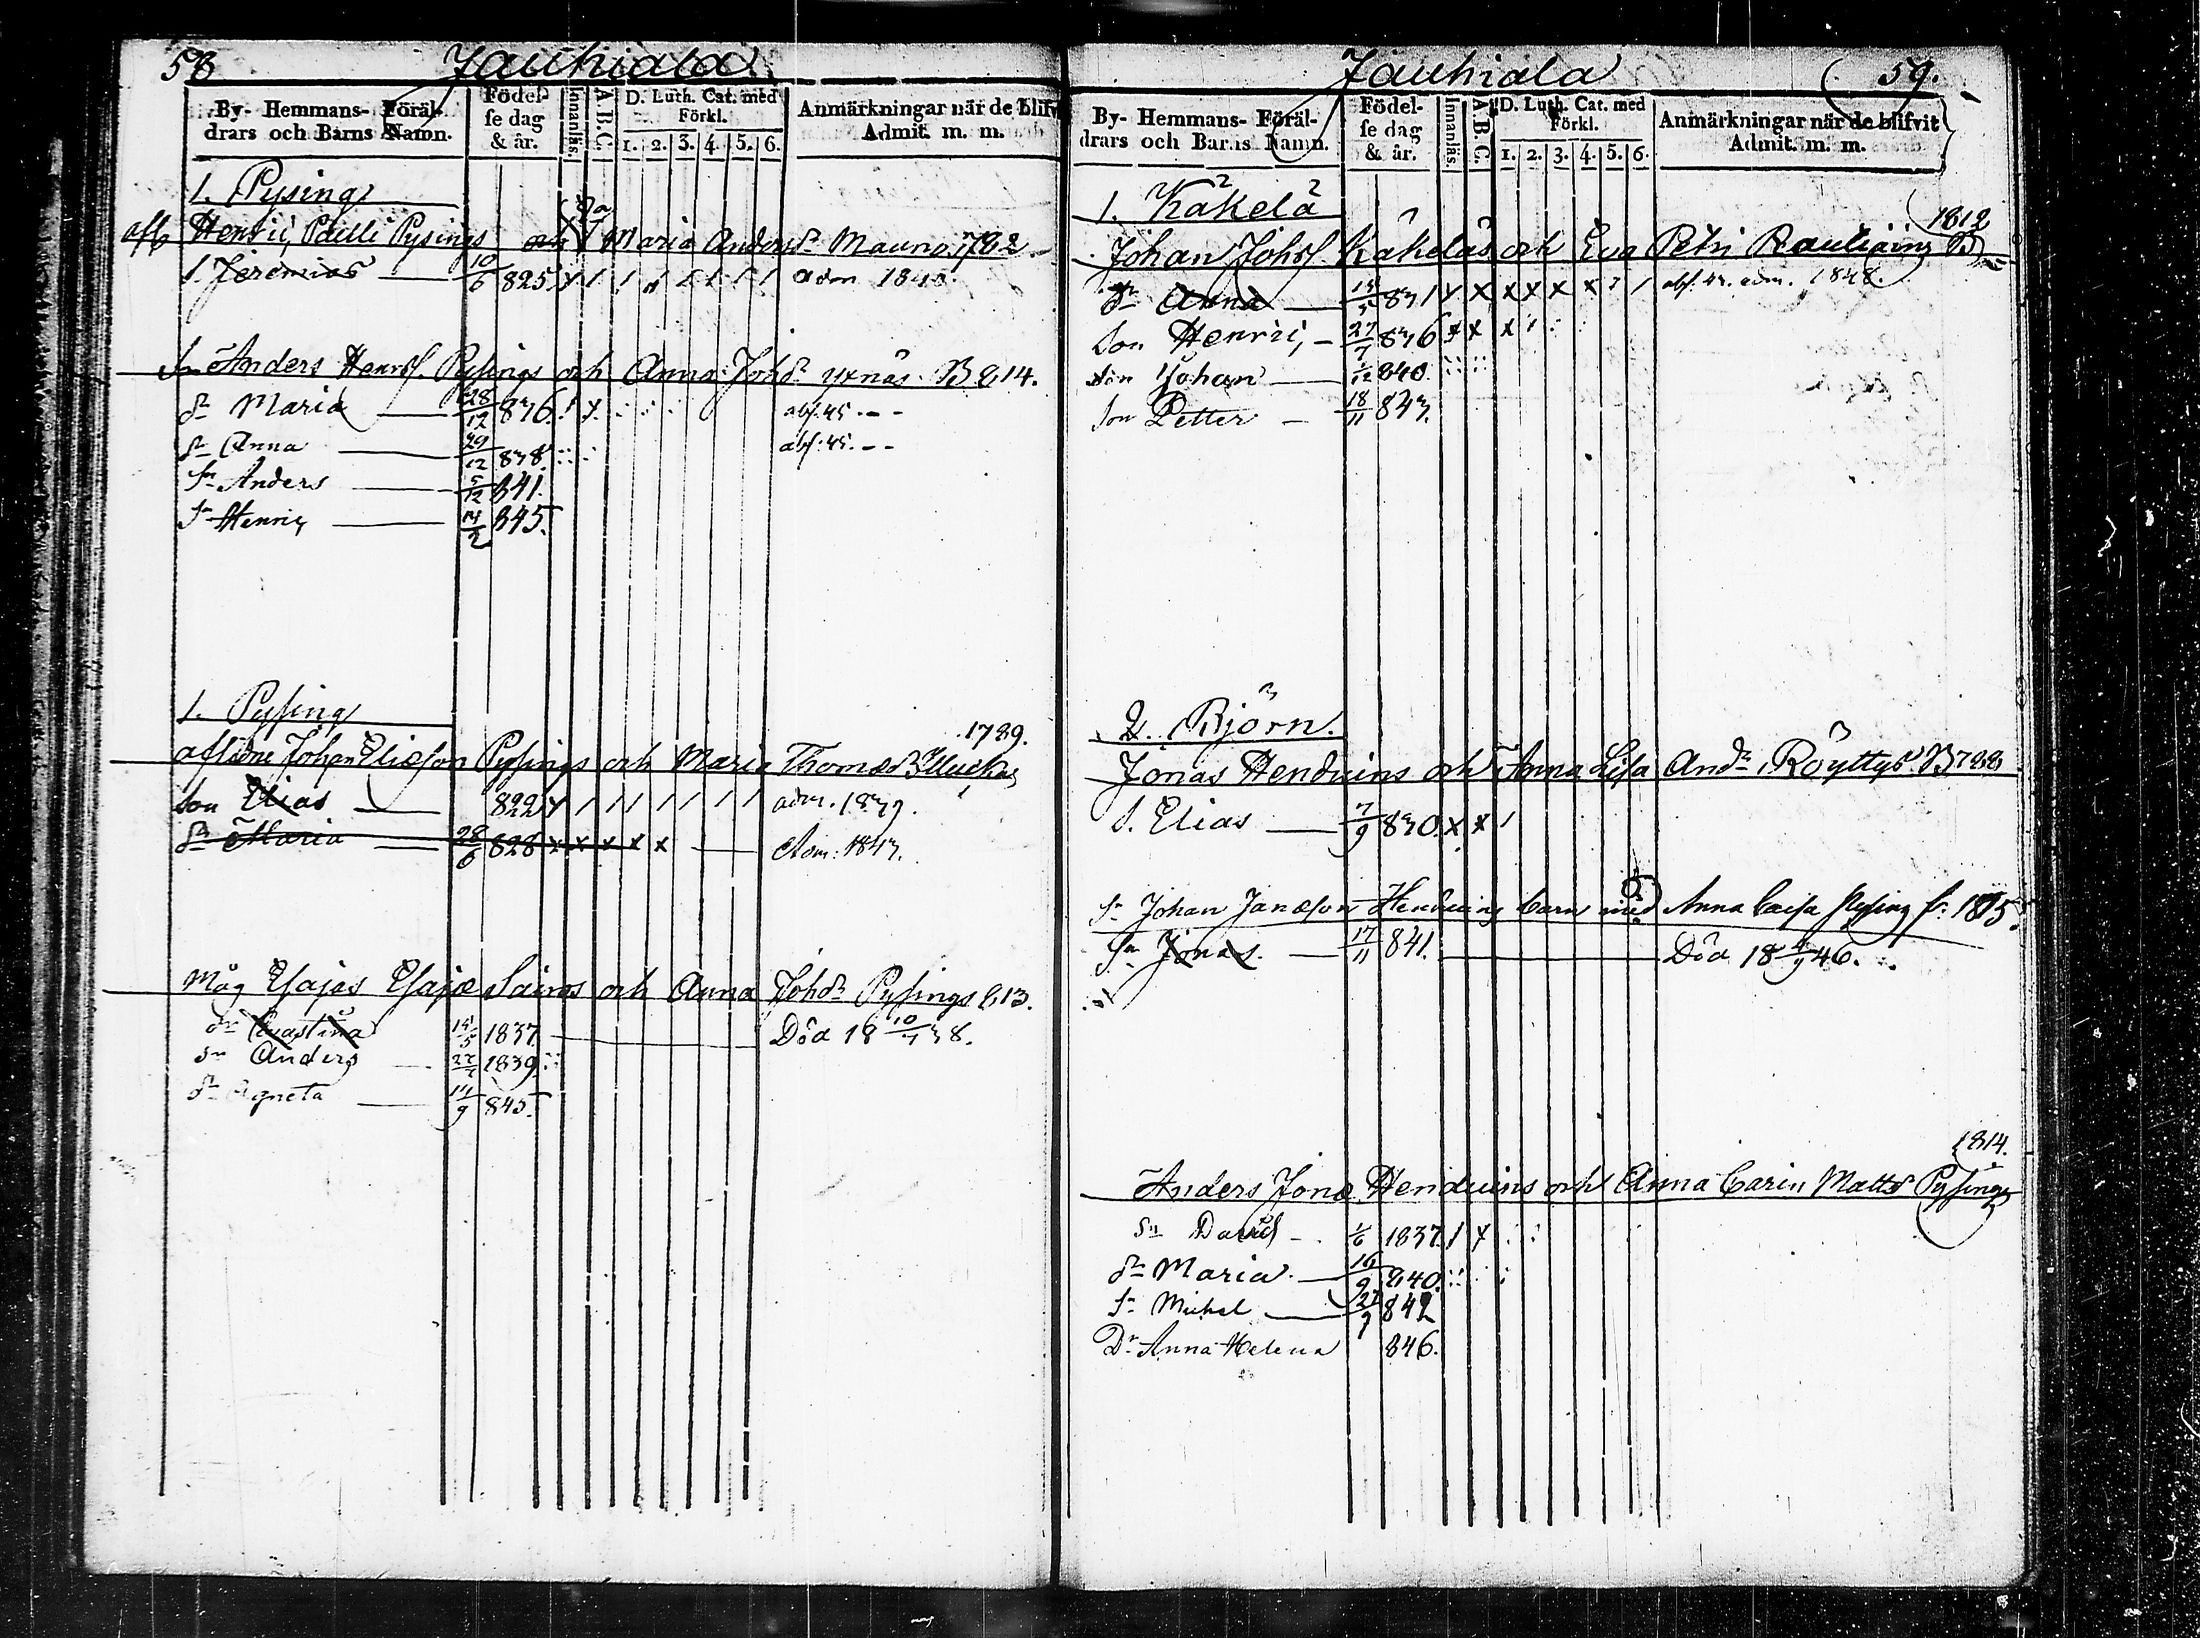 58 Jauhiala
By- Hemmans- Föräl- drars och Barns Namn. Födel- se dag & år. Innanläs. A.B.C. D. Luth. Cat. med Förkl. 1. 2. 3. 4. 5. 6. Anmärkningar när de blifvit Admit. m. m.
1. Pysing
afl. Henric Pauli Pysings och Maria Andersdr Mauno. 1782
S. Jeremias 10/6 825. adm 1840.
Sn Anders Henrss. Pysings och Anna Johdr yxnäs. B 814.
dr Maria 28/12 836. abs. 45.
dr Anna 29/12 838. abs. 45.
Sn Anders 5/12 841.
Sn Henric 14/2 845.
1. Pysing
1789.
aflidne Johan Eliæson Pysings och Maria Thomædr
son Elias 822 adm. 1839.
dr Maria 28/6 828 Adm. 1843.
Måg Esajas Esajæ Sairos och Anna Johdr Pysings 813.
dr 1837. Död 18 10/7 38.
sn Anders 1839.
dr Agneta 14/9 845.
Jauhiala 59.
By- Hemmans- Föräl- drars och Barns Namn. Födel- se dag & år. Innanläs. A.B.C. D. Luth. Cat. med Förkl. 1. 2. 3. 4. 5. 6. Anmärkningar när de blifvit Admit. m. m.
1. Käkelä
1812
Johan Johss. Käkeläs och Eva Petri
dr Anna 831 abs. 43. adm. 1848.
Son Henric, 27/7 836
son Johan 1/12 840.
Son Petter 18/11 843.
2. Björn.
Jonas Henduins och Anna Lisa Anddr Röyttys B 788
S. Elias 7/9 830.
Sn Johan Janæson Henduins barn med Anna Caisa Pysing f. 1815.
Sn Jonas. 17/11 841. Död 18 4/9 46.
1814.
Anders Jonæ Henduins och Anna Carin Mattsdr Pysings
Sn David 1/6 1837.
dr Maria 16/9 840.
Sn Michel 27/9 842
Dr Anna Helena 846.